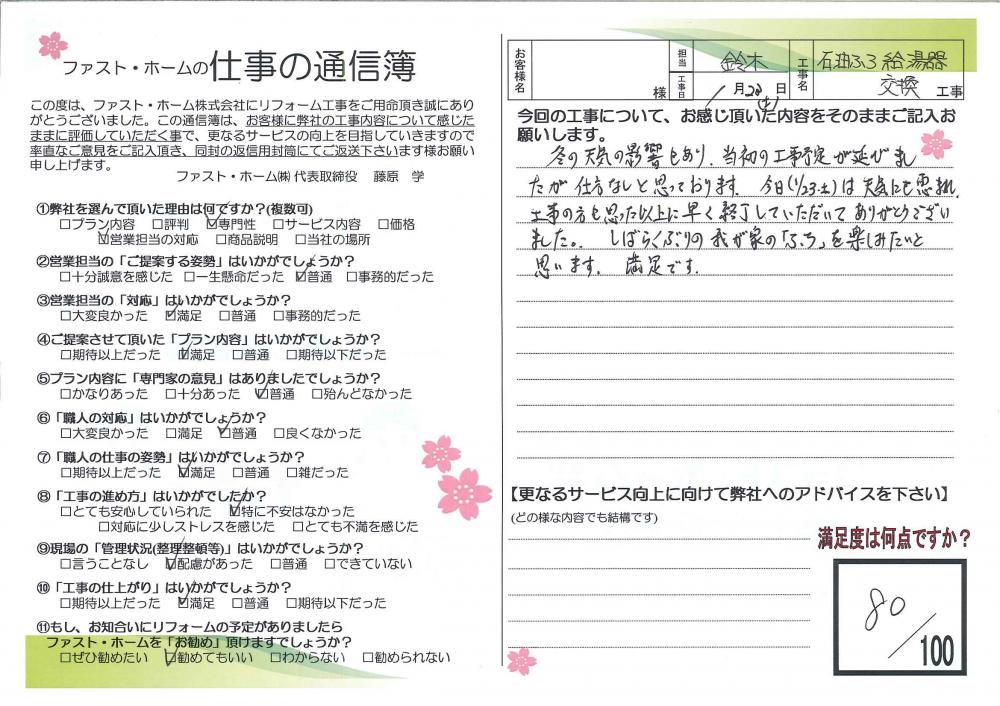 ファスト・ホームの仕事の通信簿
この度は、ファスト・ホーム株式会社にリフォーム工事をご用命頂き誠にあり
がとうございました。この通信簿は、お客様に弊社の工事内容について感じた
ままに評価していただく事で、更なるサービスの向上を目指していきますので
率直なご意見をご記入頂き、同封の返信用封筒にてご返送下さいます様お願い
申し上げます。
ファスト・ホーム㈱ 代表取締役 藤原 学
①弊社を選んで頂いた理由は何ですか？(複数可)
□プラン内容 □評判 ☑専門性 □サービス内容 □価格
☑営業担当の対応 □商品説明 □当社の場所
②営業担当の「ご提案する姿勢」はいかがでしょうか？
□十分誠意を感じた □一生懸命だった ☑普通 □事務的だった
③営業担当の「対応」はいかがでしょうか？
□大変良かった ☑満足 □普通 □事務的だった
④ご提案させて頂いた「プラン内容」はいかがでしょうか？
□期待以上だった ☑満足 □普通 □期待以下だった
⑤プラン内容に「専門家の意見」はありましたでしょうか？
□かなりあった □十分あった ☑普通 □殆んどなかった
⑥「職人の対応」はいかがでしょうか？
□大変良かった □満足 ☑普通 □良くなかった
⑦「職人の仕事の姿勢」はいかがでしょうか？
□期待以上だった ☑満足 □普通 □雑だった
⑧「工事の進め方」はいかがでしたか？
□とても安心していられた ☑特に不安はなかった
□対応に少しストレスを感じた □とても不満を感じた
⑨現場の「管理状況(整理整頓等)」はいかがでしょうか？
□言うことなし ☑配慮があった □普通 □できていない
⑩「工事の仕上がり」はいかがでしょうか？
□期待以上だった ☑満足 □普通 □期待以下だった
⑪もし、お知合いにリフォームの予定がありましたら
ファスト・ホームを「お勧め」頂けますでしょうか？
□ぜひ勧めたい ☑勧めてもいい □わからない □勧められない
お客様名 様
担当 鈴木
工事日 1月23日(土)
工事名 石油ふろ給湯器
交換 工事
今回の工事について、お感じ頂いた内容をそのままご記入お
願いします。
冬の天気の影響もあり、当初の工事予定が延びまし
たが仕方なしと思っております。今日(1/23.土)は天気にも恵まれ、
工事の方も思った以上に早く終了していただいてありがとうござい
ました。しばらくぶりの我が家の「ふろ」を楽しみたいと
思います。満足です。
【更なるサービス向上に向けて弊社へのアドバイスを下さい】
(どの様な内容でも結構です)
満足度は何点ですか？
80/100